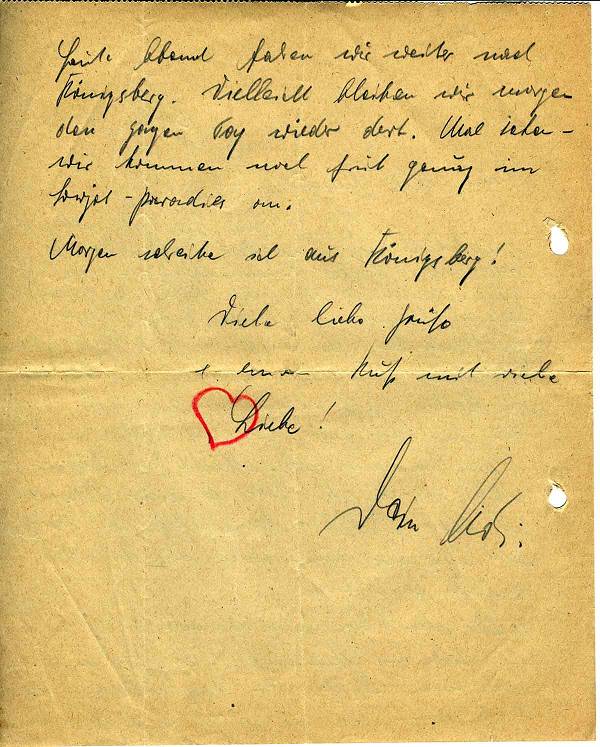 Heute Abend fahren wir weiter nach
Königsberg. Vielleicht bleiben wir morgen
den ganzen Tag wieder dort. Mal sehen –
wir kommen noch früh genug im
Sowjet-paradies an.
Morgen schreibe ich aus Königsberg!
Viele liebe Grüße
Kuß mit viele
Liebe!
Dein